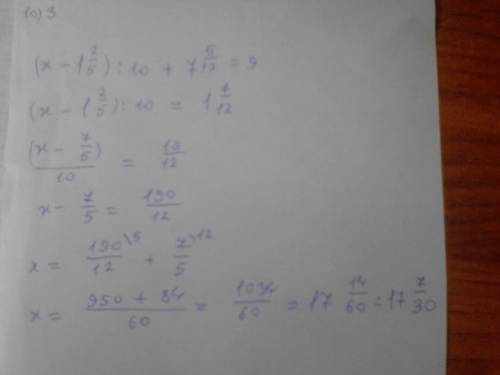 10) 3
(x - 1 2/5) : 10 + 7 5/12 = 9
(x - 1 2/5) : 10 = 1 7/12
(x - 7/5)/10 = 19/12
x - 7/5 = 190/12
x = 190/12 \5 + 7/5 \12
x = (950 + 84)/60 = 1034/60 = 17 14/60 = 17 7/30